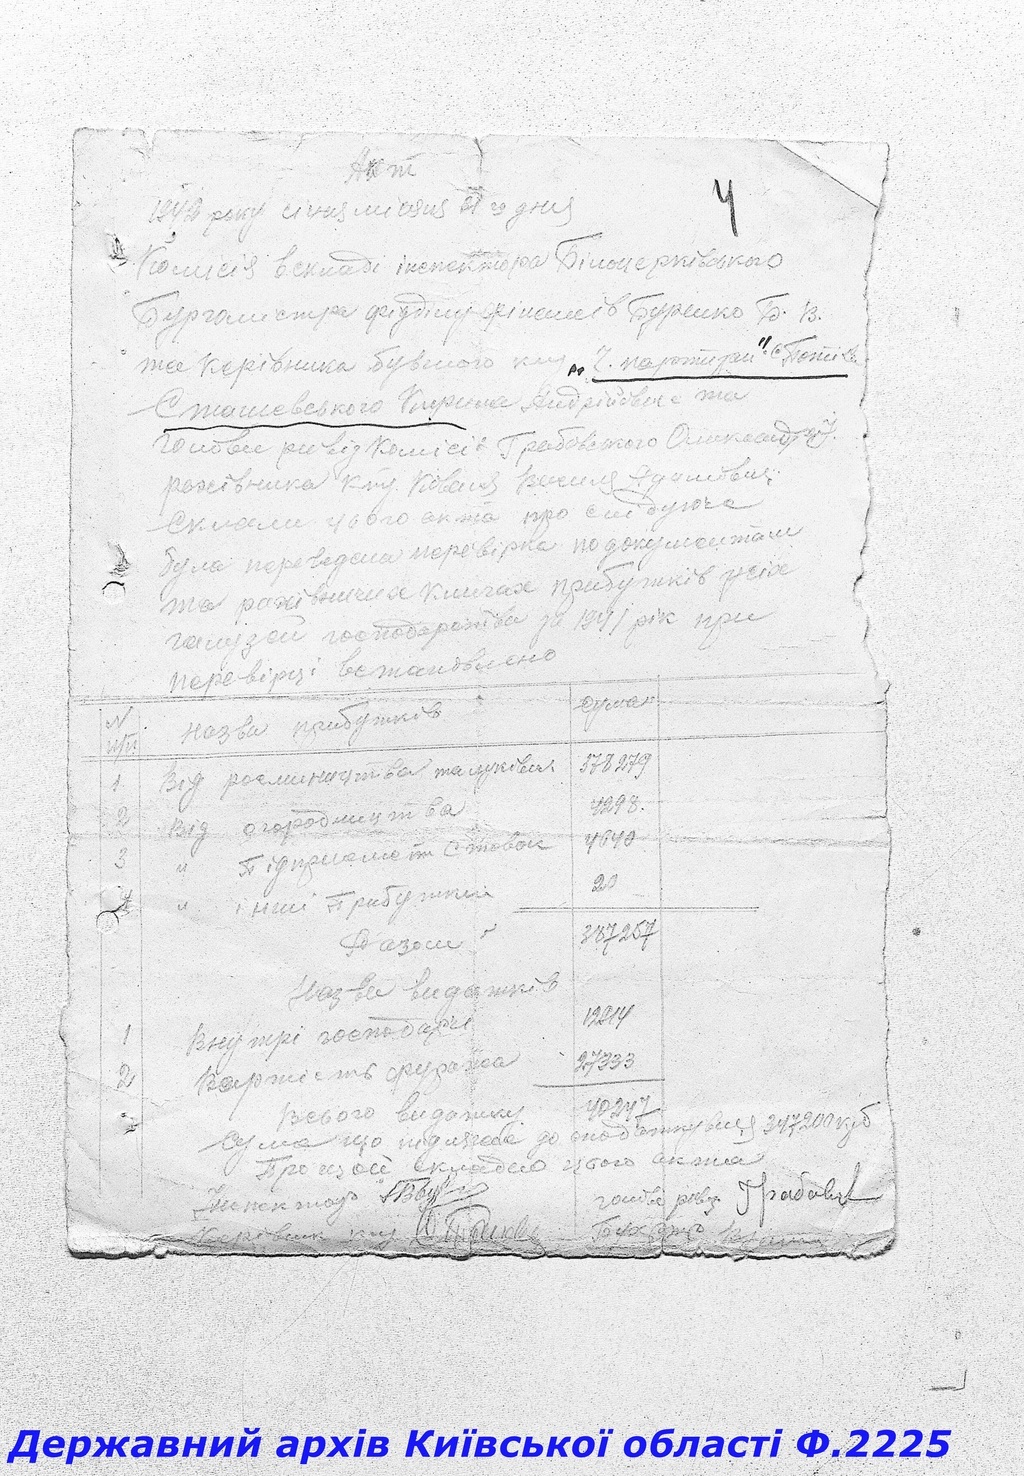 Акт
4
1942 року січня місяця 21 го дня
Комісія вскладі інспектора Білоцерківського
Бургомістра відділу фінансів Буренко Б. В.
та Керівника бувшого кгу „Ч. партизан"
Сташевського Андрійовича та
Голови ревіз Комісіі Грабовського
рахівника кгу. Коваля Василя
Склали цього акта про слідуюче
була переведена перевірка по документам
та рахівничих книгах прибутків усіх
галузей господарства за 1941 рік при
перевірці встановлено
N п/п Назва прибутків сумах
1 Від рослинництва та луківн. 378279
2 Від огородництва 4298.
3 " Підприємст ставок 4640
4 " інші Прибутки 20
Разом 387257
Назва видатків
1 Внутрі господарч 12914
2 Вартість фуража 27333
Всього видатку 40247
Сума що підлягає до 347200 крб
Про що й складено цього акта
Інспектор голова ревіз Грабовс
Керівник кгу
Державний архів Київської області Ф.2225